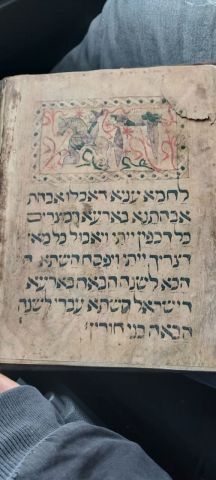 הא
לחמא עניא דאכלו אבהת
אבהתנא בארעא דמצרים
כל דכפין ייתי ויאכל כל מא
דצריך ייתי ויפסח השתא
הכא לשנה הבאה בארעא
דישראל השתא עבדי לשנה
הבאה בני חורין